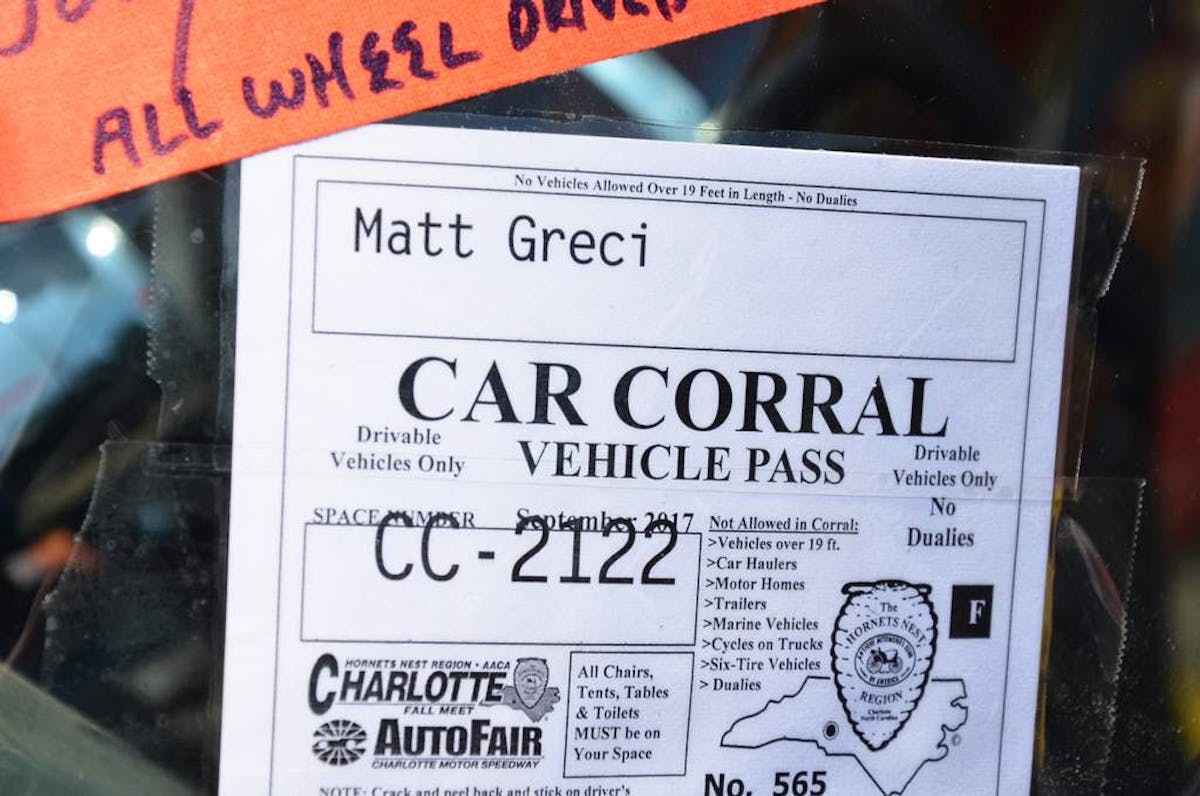 ALL WHEEL DRIVE
No Vehicles Allowed Over 19 Feet in Length - No Dualies
Matt Greci
CAR CORRAL
VEHICLE PASS
Drivable
Vehicles Only
Drivable
Vehicles Only
No
Dualies
SPACE NUMBER
September 2017
CC-2122
Not Allowed in Corral:
>Vehicles over 19 ft.
>Car Haulers
>Motor Homes
>Trailers
>Marine Vehicles
>Cycles on Trucks
>Six-Tire Vehicles
> Dualies
F
The
HORNETS NEST
REGION
Charlotte
North Carolina
HORNETS NEST REGION • AACA
CHARLOTTE
FALL MEET
AUTOFAIR
CHARLOTTE MOTOR SPEEDWAY
All Chairs,
Tents, Tables
& Toilets
MUST be on
Your Space
No. 565
NOTE: Crack and peel back and stick on driver's